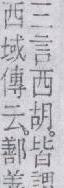 三言西胡皆謂
西域傳云鄯善